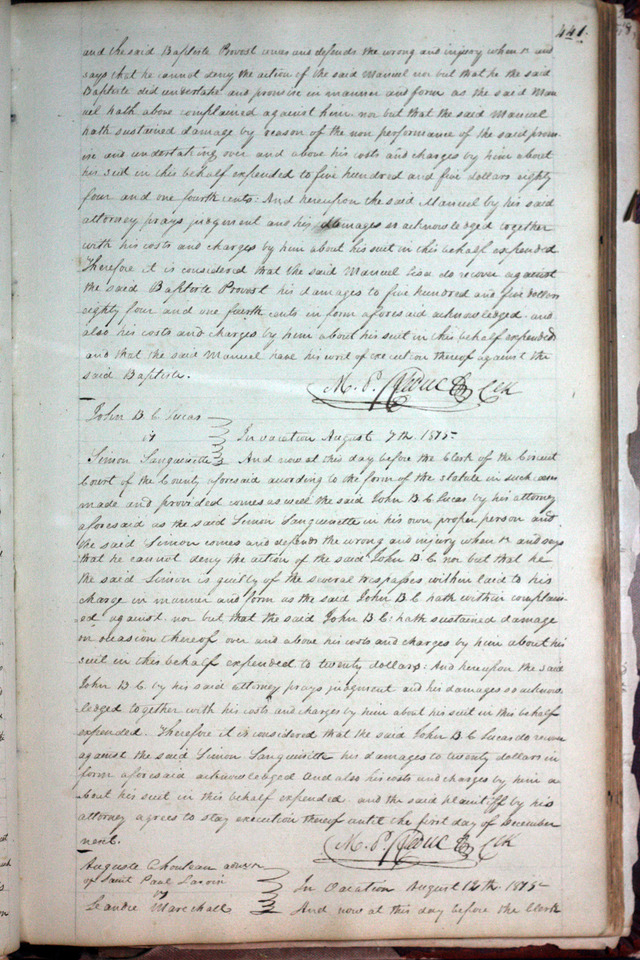 441.
and the said Baptiste Provost comes and defends the wrong and injury when &c and
says that he cannot deny the action of the said Manuel nor but that he the said
Baptiste did undertake and promise in manner and form as the said Man-
uel hath above complained against him nor but that the said Manuel
hath sustained damage by reason of the non performance of the said prom-
ise and undertaking over and above his costs and charges by him about
his suit in this behalf expended to five hundred and five dollars eighty
four and one fourth cents: And hereupon the said Manuel by his said
attorney prays judgment and his damages so acknowledged together
with his costs and charges by him about his suit in this behalf expended
Therefore it is considered that the said Manuel Lisa do recover against
the said Baptiste Provost his damages to five hundred and five dollars
eighty four and one fourth cents in form aforesaid acknowledged and
also his costs and charges by him about his suit in this behalf expended
and that the said Manuel have his writ of execution thereof against the
said Baptiste.
M. P. Leduc Clk
John B C Lucas
vs
In vacation August 7th. 1815-
Simon Sanguinette And now at this day before the Clerk of the Circuit
Court of the County aforesaid according to the form of the statute in such case
made and provided comes as well the said John B C Lucas by his attorney
aforesaid as the said Simon Sanguinette in his own proper person and
the said Simon comes and defends the wrong and injury when &c and says
that he cannot deny the action of the said John B C nor but that he
the said Simon is guilty of the several trespasses within laid to his
charge in manner and form as the said John B C hath within complain-
ed against nor but that the said John B C hath sustained damage
on occasion thereof over and above his costs and charges by him about his
suit in this behalf expended to twenty dollars: And hereupon the said
John B C by his said attorney prays judgment and his damages so acknow-
ledged together with his costs and charges by him about his suit in this behalf
expended. Therefore it is considered that the said John B C Lucas do recover
against the said Simon Sanguinette his damages to twenty dollars in
form aforesaid acknowledged And also his costs and charges by him a-
bout his suit in this behalf expended and the said plaintiff by his
attorney agrees to stay execution thereof until the first day of December
next.
M. P. Leduc Clk
Auguste Chouteau
of Saint Paul
vs
In Vacation August 12th. 1815-
Leandre Marechall And now at this day before the Clerk